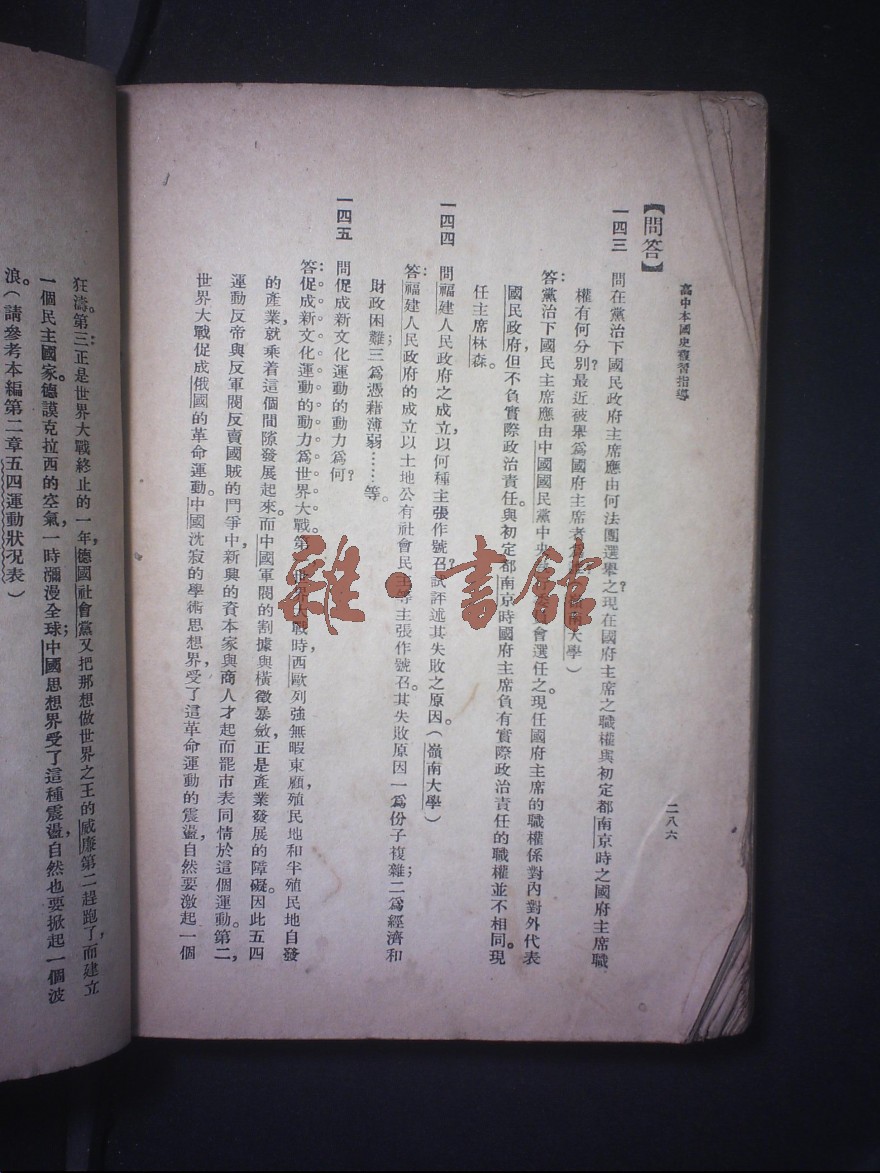 高中本國史複習指導
二八六
【問答】
一四三 問在黨治下國民政府主席應由何法團選舉之?現在國府主席之職權與初定都南京時之國府主席職
權有何分別?最近被舉爲國府主席者 嶺南大學)
答:黨治下國民主席應由中國國民黨中央 會選任之。現任國府主席的職權係對內對外代表
國民政府,但不負實際政治責任。與初定都南京時國府主席負有實際政治責任的職權並不相同。現
任主席林森。
一四四 問福建人民政府之成立,以何種主張作號召?試評述其失敗之原因。(嶺南大學)
答:福建人民政府的成立以土地公有社會民主等主張作號召。其失敗原因一爲份子複雜;二爲經濟和
財政困難;三爲憑藉薄弱……等。
一四五 問促成新文化運動的動力爲何?
答:促成新文化運動的動力爲世界大戰。第 世界大戰時西歐列強無暇東顧,殖民地和半殖民地自發
的產業,就乘着這個間隙發展起來。而中國軍閥的割據與橫徵暴斂,正是產業發展的障礙。因此五四
運動反帝與反軍閥反賣國賊的鬥爭中,新興的資本家與商人才起而罷市表同情於這個運動。第二,
世界大戰促成俄國的革命運動。中國沈寂的學術思想界,受了這革命運動的震盪,自然要激起一個
狂濤。第三:正是世界大戰終止的一年,德國社會黨又把那想做世界之王的威廉第二趕跑了,而建立
一個民主國家。德謨克拉西的空氣,一時瀰漫全球;中國思想界受了這種震盪,自然也要掀起一個波
浪。(請參考本編第二章五四運動狀況表)
雜·書館